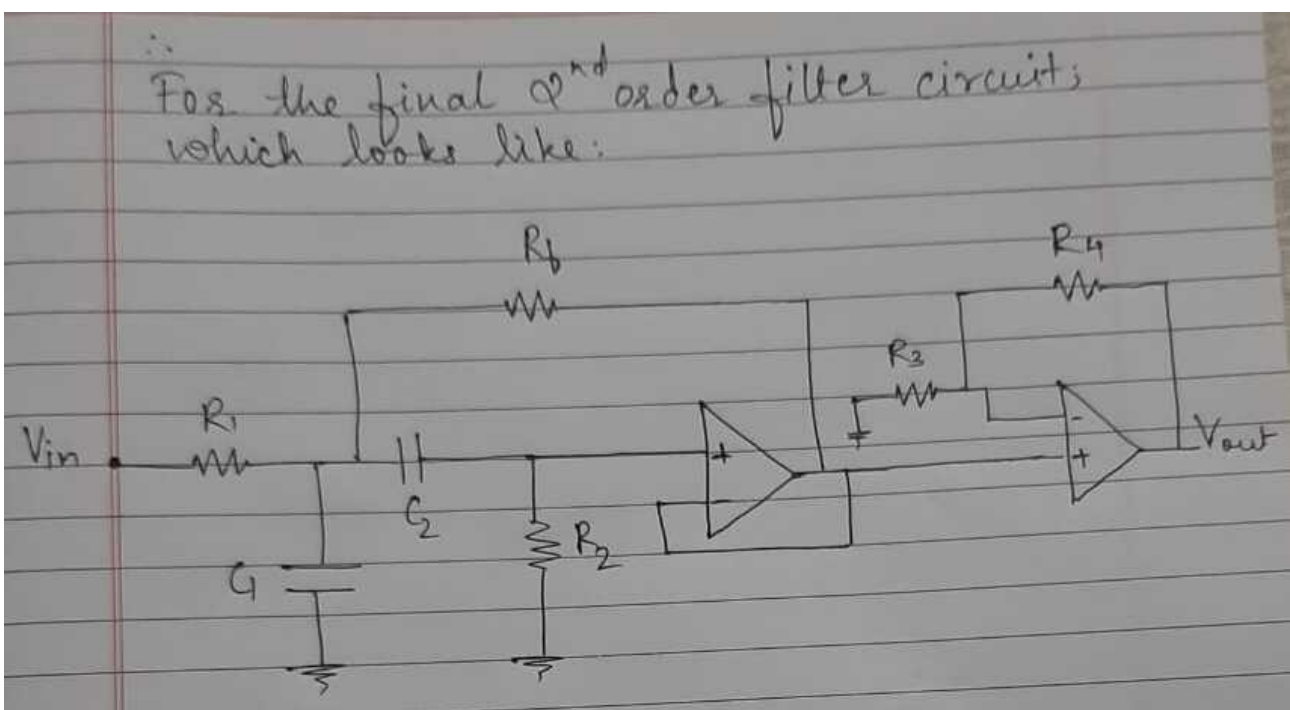 ∴
For the final 2nd order filter circuit;
which looks like:
Rf
R4
R3
R1
Vin
-
+
Vout
+
-
C2
R2
C1